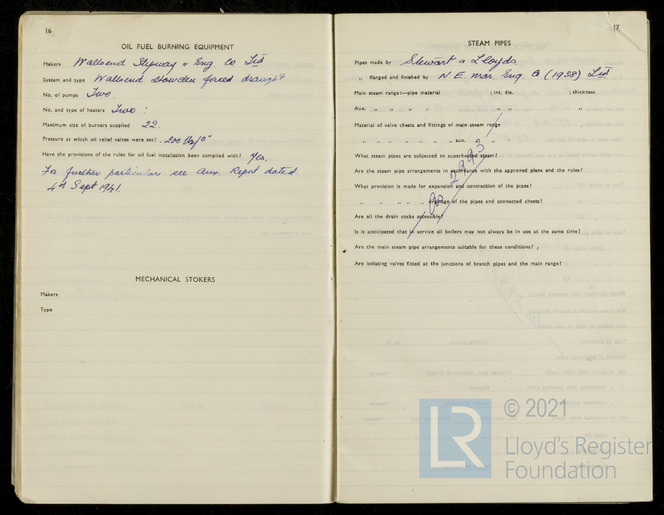 16
OIL FUEL BURNING EQUIPMENT
Makers Wallsend Slipway & Eng. Co Ltd
System and type Wallsend Howden forced draught
No. of pumps Two
No. and type of heaters Two :
Maximum size of burners supplied 22.
Pressure at which oil relief valves were set? 200 lbs/□"
Have the provisions of the rules for oil fuel installation been complied with? Yes.
For further particulars see Aux. Report dated
4th Sept 1941.
MECHANICAL STOKERS
Makers
Type
17
STEAM PIPES
Pipes made by Stewart & Lloyds
„ flanged and finished by N E. Mar. Eng. Co (1938) Ltd
Main steam range:—pipe material ; int. dia. ; thickness
Aux. „ „ „ „ „ „ „
Material of valve chests and fittings of main steam range
„ „ „ „ „ „ aux. „ „
What steam pipes are subjected to superheated steam?
Are the steam pipe arrangements in accordance with the approved plans and the rules?
What provision is made for expansion and contraction of the pipes?
„ „ „ „ „ drainage of the pipes and connected chests?
Are all the drain cocks accessible?
Is it anticipated that in service all boilers may not always be in use at the same time?
Are the main steam pipe arrangements suitable for these conditions?
Are isolating valves fitted at the junctions of branch pipes and the main range?
LR
© 2021
Lloyd's Register
Foundation